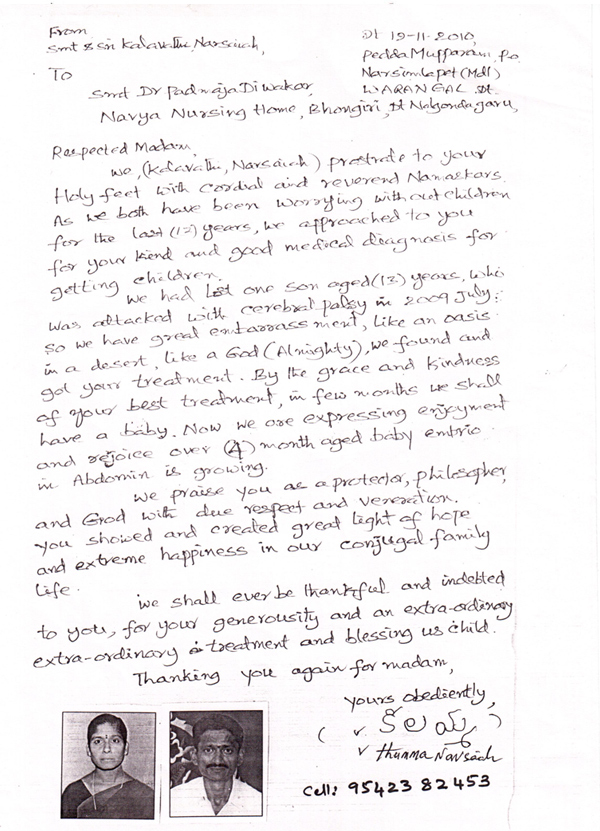 From
Smt & Sri Kalavathi, Narsaiah,
Dt 19-11-2010,
Pedda Mupparam, P.o
Narsimlapet (Mdl)
WARANGAL Dt.
To
Smt Dr Padmaja Diwakar,
Navya Nursing Home, Bhongiri, Dt Nalgonda garu,
Respected Madam,
We, (Kalavathi, Narsaiah) prostrate to your
Holy feet with cordial and reverend Namaskars.
As we both have been worrying without children
for the last (12) years, we approached to you
for your kind and good medical diagnosis for
getting children.
We had lost one son aged (13) years, who
was attacked with cerebral palsy in 2009 July.
So we have great embarrassment, like an oasis
in a desert, like a God (Almighty), we found and
got your treatment. By the grace and kindness
of your best treatment, in few months we shall
have a baby. Now we are expressing enjoyment
and rejoice over (4) month aged baby embrio
in Abdomin is growing.
We praise you as a protector, philosopher,
and God with due respect and veneration.
You showed and created great light of hope
and extreme happiness in our conjugal family
life.
We shall ever be thankful and indebted
to you, for your generousity and an extra-ordinary
extra-ordinary treatment and blessing us child.
Thanking you again for madam,
yours obediently,
(
)
Thumma Narsaiah
Cell: 95423 82453